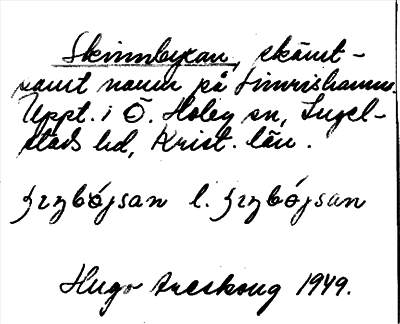 Skinnbyxan, skämt-
samt namn på Simrishamn.
Uppt. i Ö. Hoby sn, Ingel-
stads hd, Krist. län.
l.
Hugo Areskoug 1949.